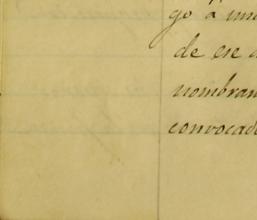 go á una
de ese
nombram
convocad